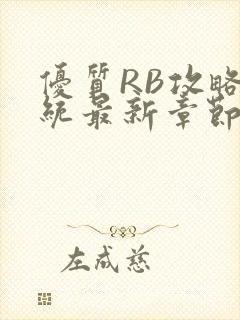 優質RB攻略
統最新章節
左成慈